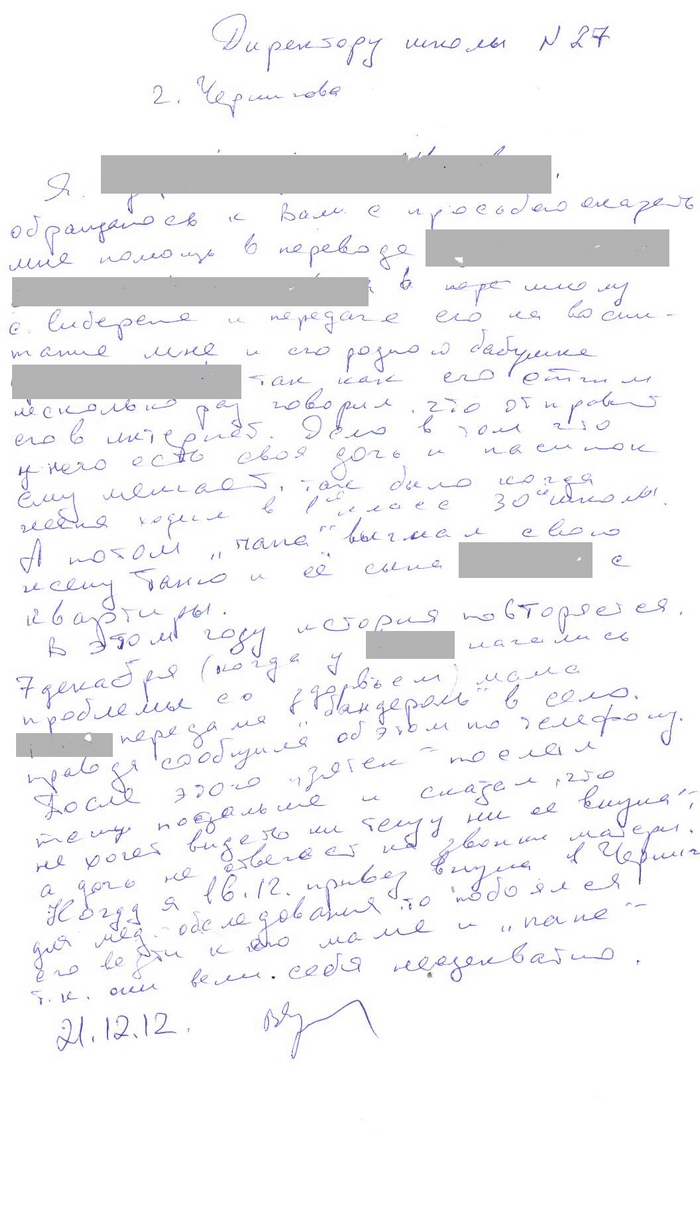 Директору школы N 27
г. Чернигова
Я
обращаюсь к Вам с просьбою оказать
мне помощь в переводе
в школу
с. Выберепе и передаче его на воспи-
тание мне и его родной бабушке
так как его отчим
несколько раз говорил, что отправит
его в интернат. Дело в том что
у него есть своя дочь и пасинок
ему мешает, так было когда
ходил в 1й класс 30й школы.
А потом „папа" выгнал свою
жену Таню и её сына с
квартиры.
В этом году история повторяется.
7 декабря (когда у начались
проблемы со здоровьем) мама
передала „бандероль" в село.
правда сообщила об этом по телефону.
После этого „зятек" послал
тещу подальше и сказал, что
не хочет видеть ни тещу ни ее внука",
а дочь не отвечает на звонки матери.
Когда я 16.12. привез внука в Черниг
для мед. обследования то побоялся
его везти к его маме и „папе"
т.к. они вели себя неадекватно.
21.12.12.